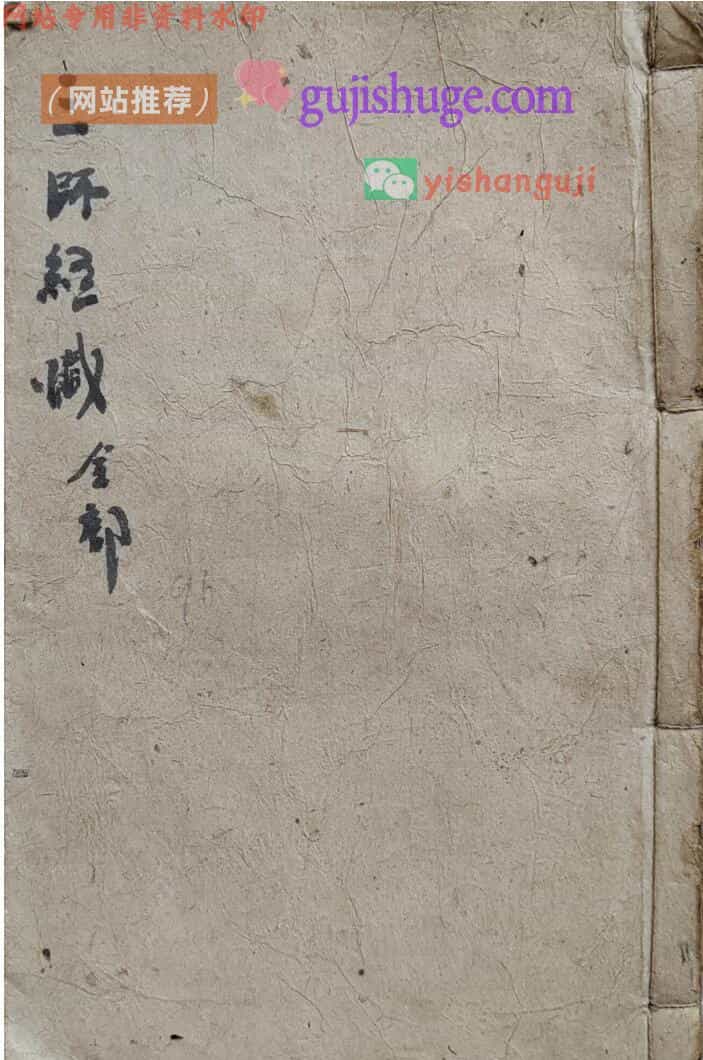 网站专用非资料水印
（网站推荐） gujishuge.com
yishanguji
師經懺全部